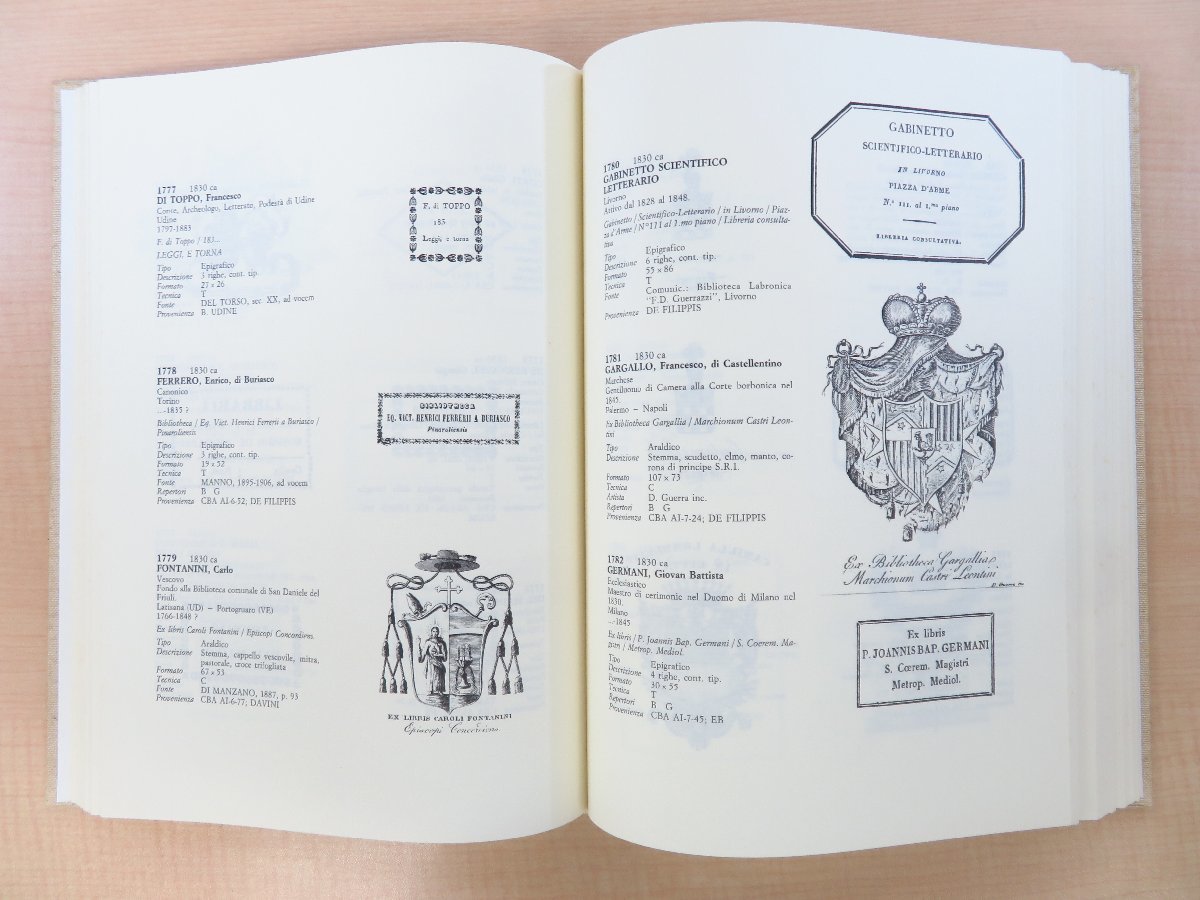 1777 1830 ca
DI TOPPO, Francesco
Conte, Archeologo, Letterato, Podestà di Udine
Udine
1797-1883
F. di Toppo / 183...
LEGGI, E TORNA
Tipo Epigrafico
Descrizione 3 righe, cont. tip.
Formato 27 x 26
Tecnica T
Fonte DEL TORSO, sec. XX, ad vocem
Provenienza B. UDINE
F. di TOPPO
183
Leggi, e torna
1778 1830 ca
FERRERO, Enrico, di Buriasco
Canonico
Torino
...-1835 ?
Bibliotheca / Eq. Vict. Henrici Ferrerii a Buriasco /
Pinaroliensis
Tipo Epigrafico
Descrizione 3 righe, cont. tip.
Formato 19 x 52
Tecnica T
Fonte MANNO, 1895-1906, ad vocem
Repertori B G
Provenienza CBA AI-6-52; DE FILIPPIS
BIBLIOTHECA
EQ. VICT. HENRICI FERRERII A BURIASCO
Pinaroliensis
1779 1830 ca
FONTANINI, Carlo
Vescovo
Fondo alla Biblioteca comunale di San Daniele del
Friuli.
Latisana (UD) – Portogruaro (VE)
1766-1848 ?
Ex libris Caroli Fontanini / Episcopi Concordiens.
Tipo Araldico
Descrizione Stemma, cappello vescovile, mitra,
pastorale, croce trifogliata
Formato 67 x 53
Tecnica C
Fonte DI MANZANO, 1887, p. 93
Provenienza CBA AI-6-77; DAVINI
EX LIBRIS CAROLI FONTANINI
Episcopi Concordiens
1780 1830 ca
GABINETTO SCIENTIFICO
LETTERARIO
Livorno
Attivo dal 1828 al 1848.
Gabinetto / Scientifico-Letterario / in Livorno / Piaz-
za d'Arme / N° 111 al 1.mo piano / Libreria consulta-
tiva
Tipo Epigrafico
Descrizione 6 righe, cont. tip.
Formato 55 x 86
Tecnica T
Fonte Comunic.: Biblioteca Labronica
"F.D. Guerrazzi", Livorno
Provenienza DE FILIPPIS
GABINETTO
SCIENTIFICO-LETTERARIO
IN LIVORNO
PIAZZA D'ARME
N.° 111. al 1.mo piano
LIBRERIA CONSULTATIVA.
1781 1830 ca
GARGALLO, Francesco, di Castellentino
Marchese
Gentiluomo di Camera alla Corte borbonica nel
1845.
Palermo – Napoli
Ex Bibliotheca Gargallia / Marchionum Castri Leon-
tini
Tipo Araldico
Descrizione Stemma, scudetto, elmo, manto, co-
rona di principe S.R.I.
Formato 107 x 73
Tecnica C
Artista D. Guerra inc.
Repertori B G
Provenienza CBA AI-7-24; DE FILIPPIS
Ex Bibliotheca Gargallia
Marchionum Castri Leontini
D. Guerra inc.
1782 1830 ca
GERMANI, Giovan Battista
Ecclesiastico
Maestro di cerimonie nel Duomo di Milano nel
1830.
Milano
...-1845
Ex libris / P. Joannis Bap. Germani / S. Coerem. Ma-
gistri / Metrop. Mediol.
Tipo Epigrafico
Descrizione 4 righe, cont. tip.
Formato 30 x 55
Tecnica T
Repertori B G
Provenienza CBA AI-7-45; EB
Ex libris
P. JOANNIS BAP. GERMANI
S. Cœrem. Magistri
Metrop. Mediol.